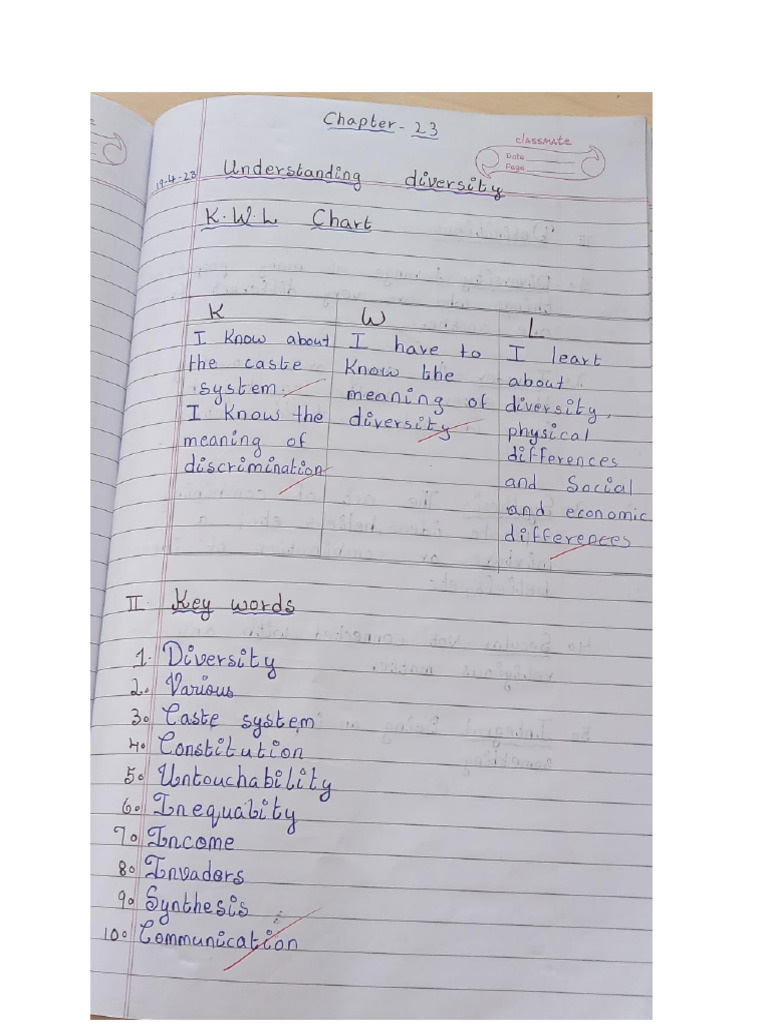 Chapter - 23
classmate
Date
Page
19-4-23
Understanding diversity
K.W.L Chart
K
W
L
I know about
the caste
system.
I know the
meaning of
discrimination
I have to
know the
meaning of
diversity
I leart
about
diversity,
physical
differences
and Social
and economic
differences
II. Key words
1. Diversity
2. Various
3. Caste system
4. Constitution
5. Untouchability
6. Inequability
7. Income
8. Invaders
9. Synthesis
10. Communication